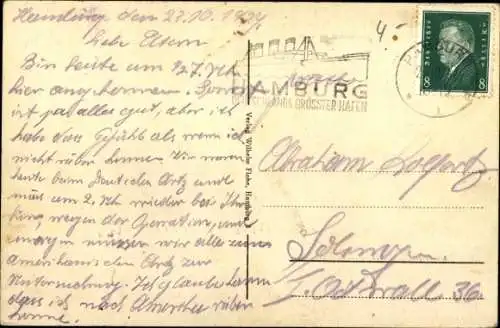 Hamburg den 27.10.1929
Liebe Eltern
Bin heute um 1/2 7 Uhr
hier angekommen.
ist ja alles gut, aber ich
habe das Gefühl als wenn ich
nicht rüber komme. Wir waren
heute beim Deutschen Arzt und
nun um 2 Uhr wieder bei ihr
wegen der Operation, und
morgen müssen wir alle zum
amerikanischen Arzt zur
Untersuchung. Ich glaube kaum
dass ich nach Amerika rüber
komme.
4.-
HAMBURG
DEUTSCHLANDS GRÖSSTER HAFEN
HAMBURG
1
8 8
Verlag Wilhelm Fiebe, Hamburg
Abraham
Solingen
Ostwall 36